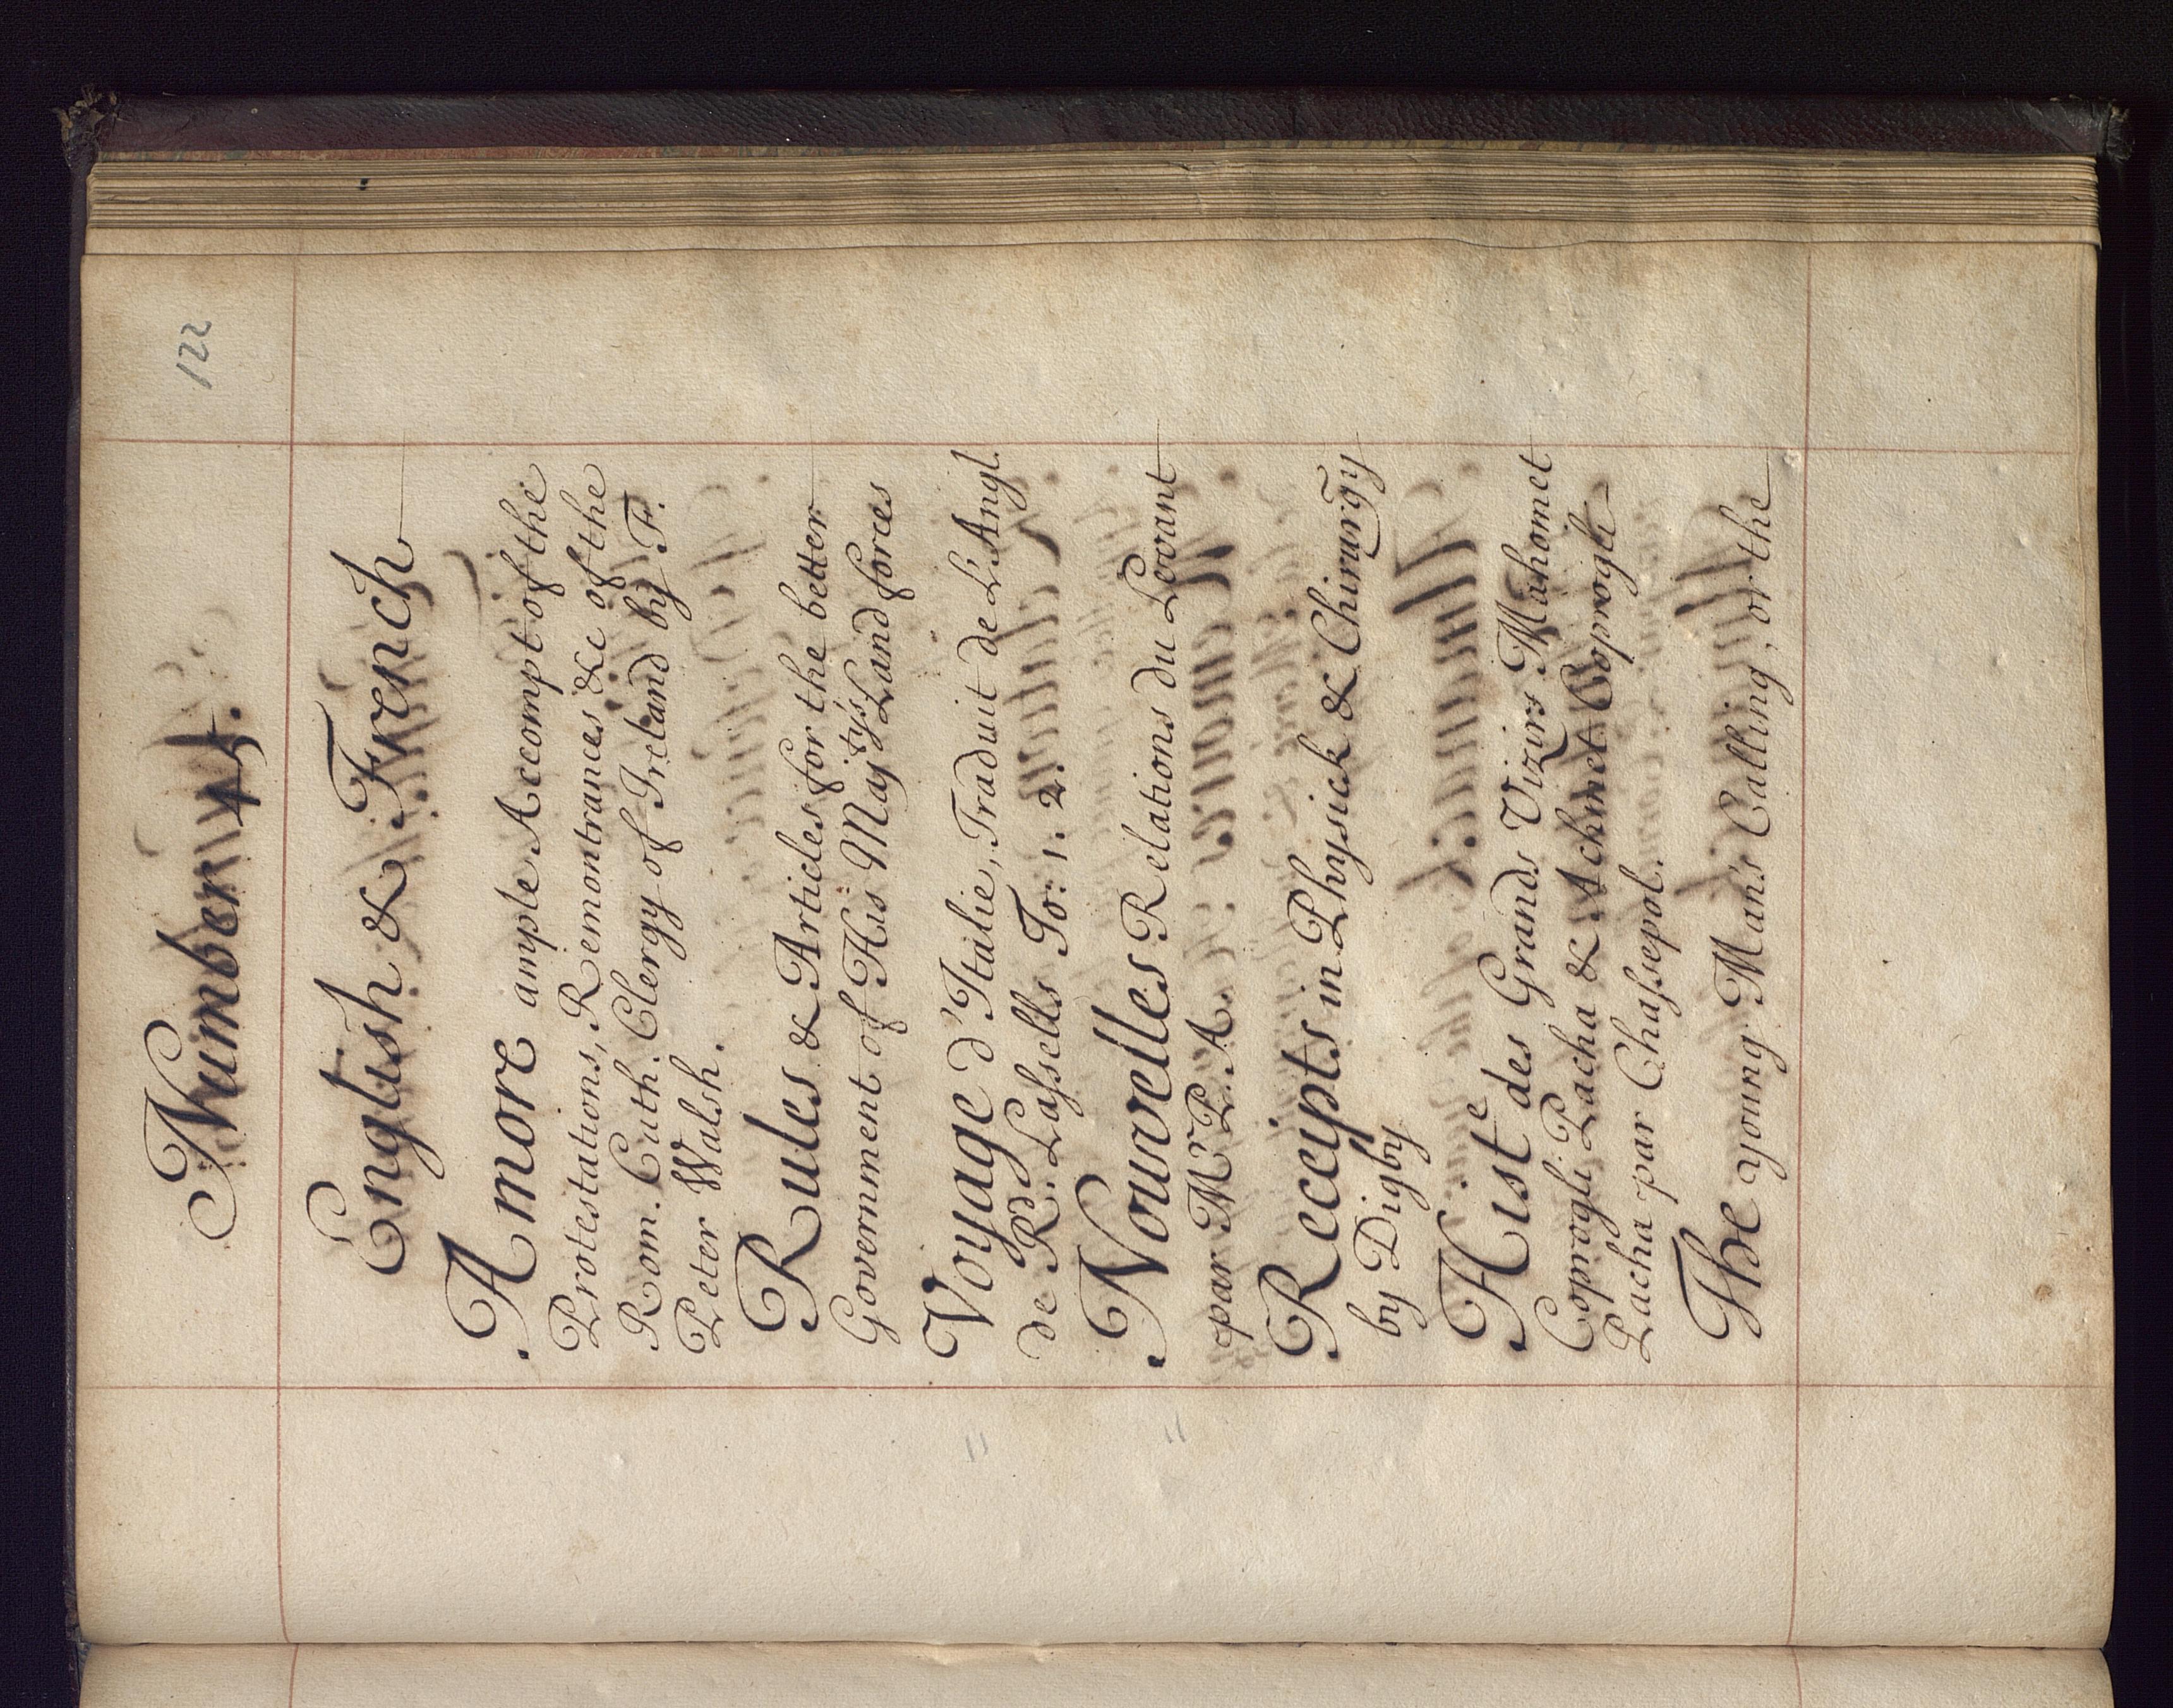 122
Number 45.
English & French
A more ample Accompt of the
Protestations, Remontrances &c of the
Rom. Cath. Clergy of Ireland by F.
Peter Walsh.
Rules & Articles for the better
Government of His Maj.tys Land forces
Voyage d'Italie, Traduit de L'Angl.
de Rd. Lassells To: 1. 2.
Nouvelles Relations du Levant
par Mr P. A.
Receipts in Physick & Chirurgy
by Digby
Histe des Grands Vizirs Mahomet
Coprogli Pacha & Achmet Coprogli
Pacha par Chassepol.
The young Man's Calling, or the